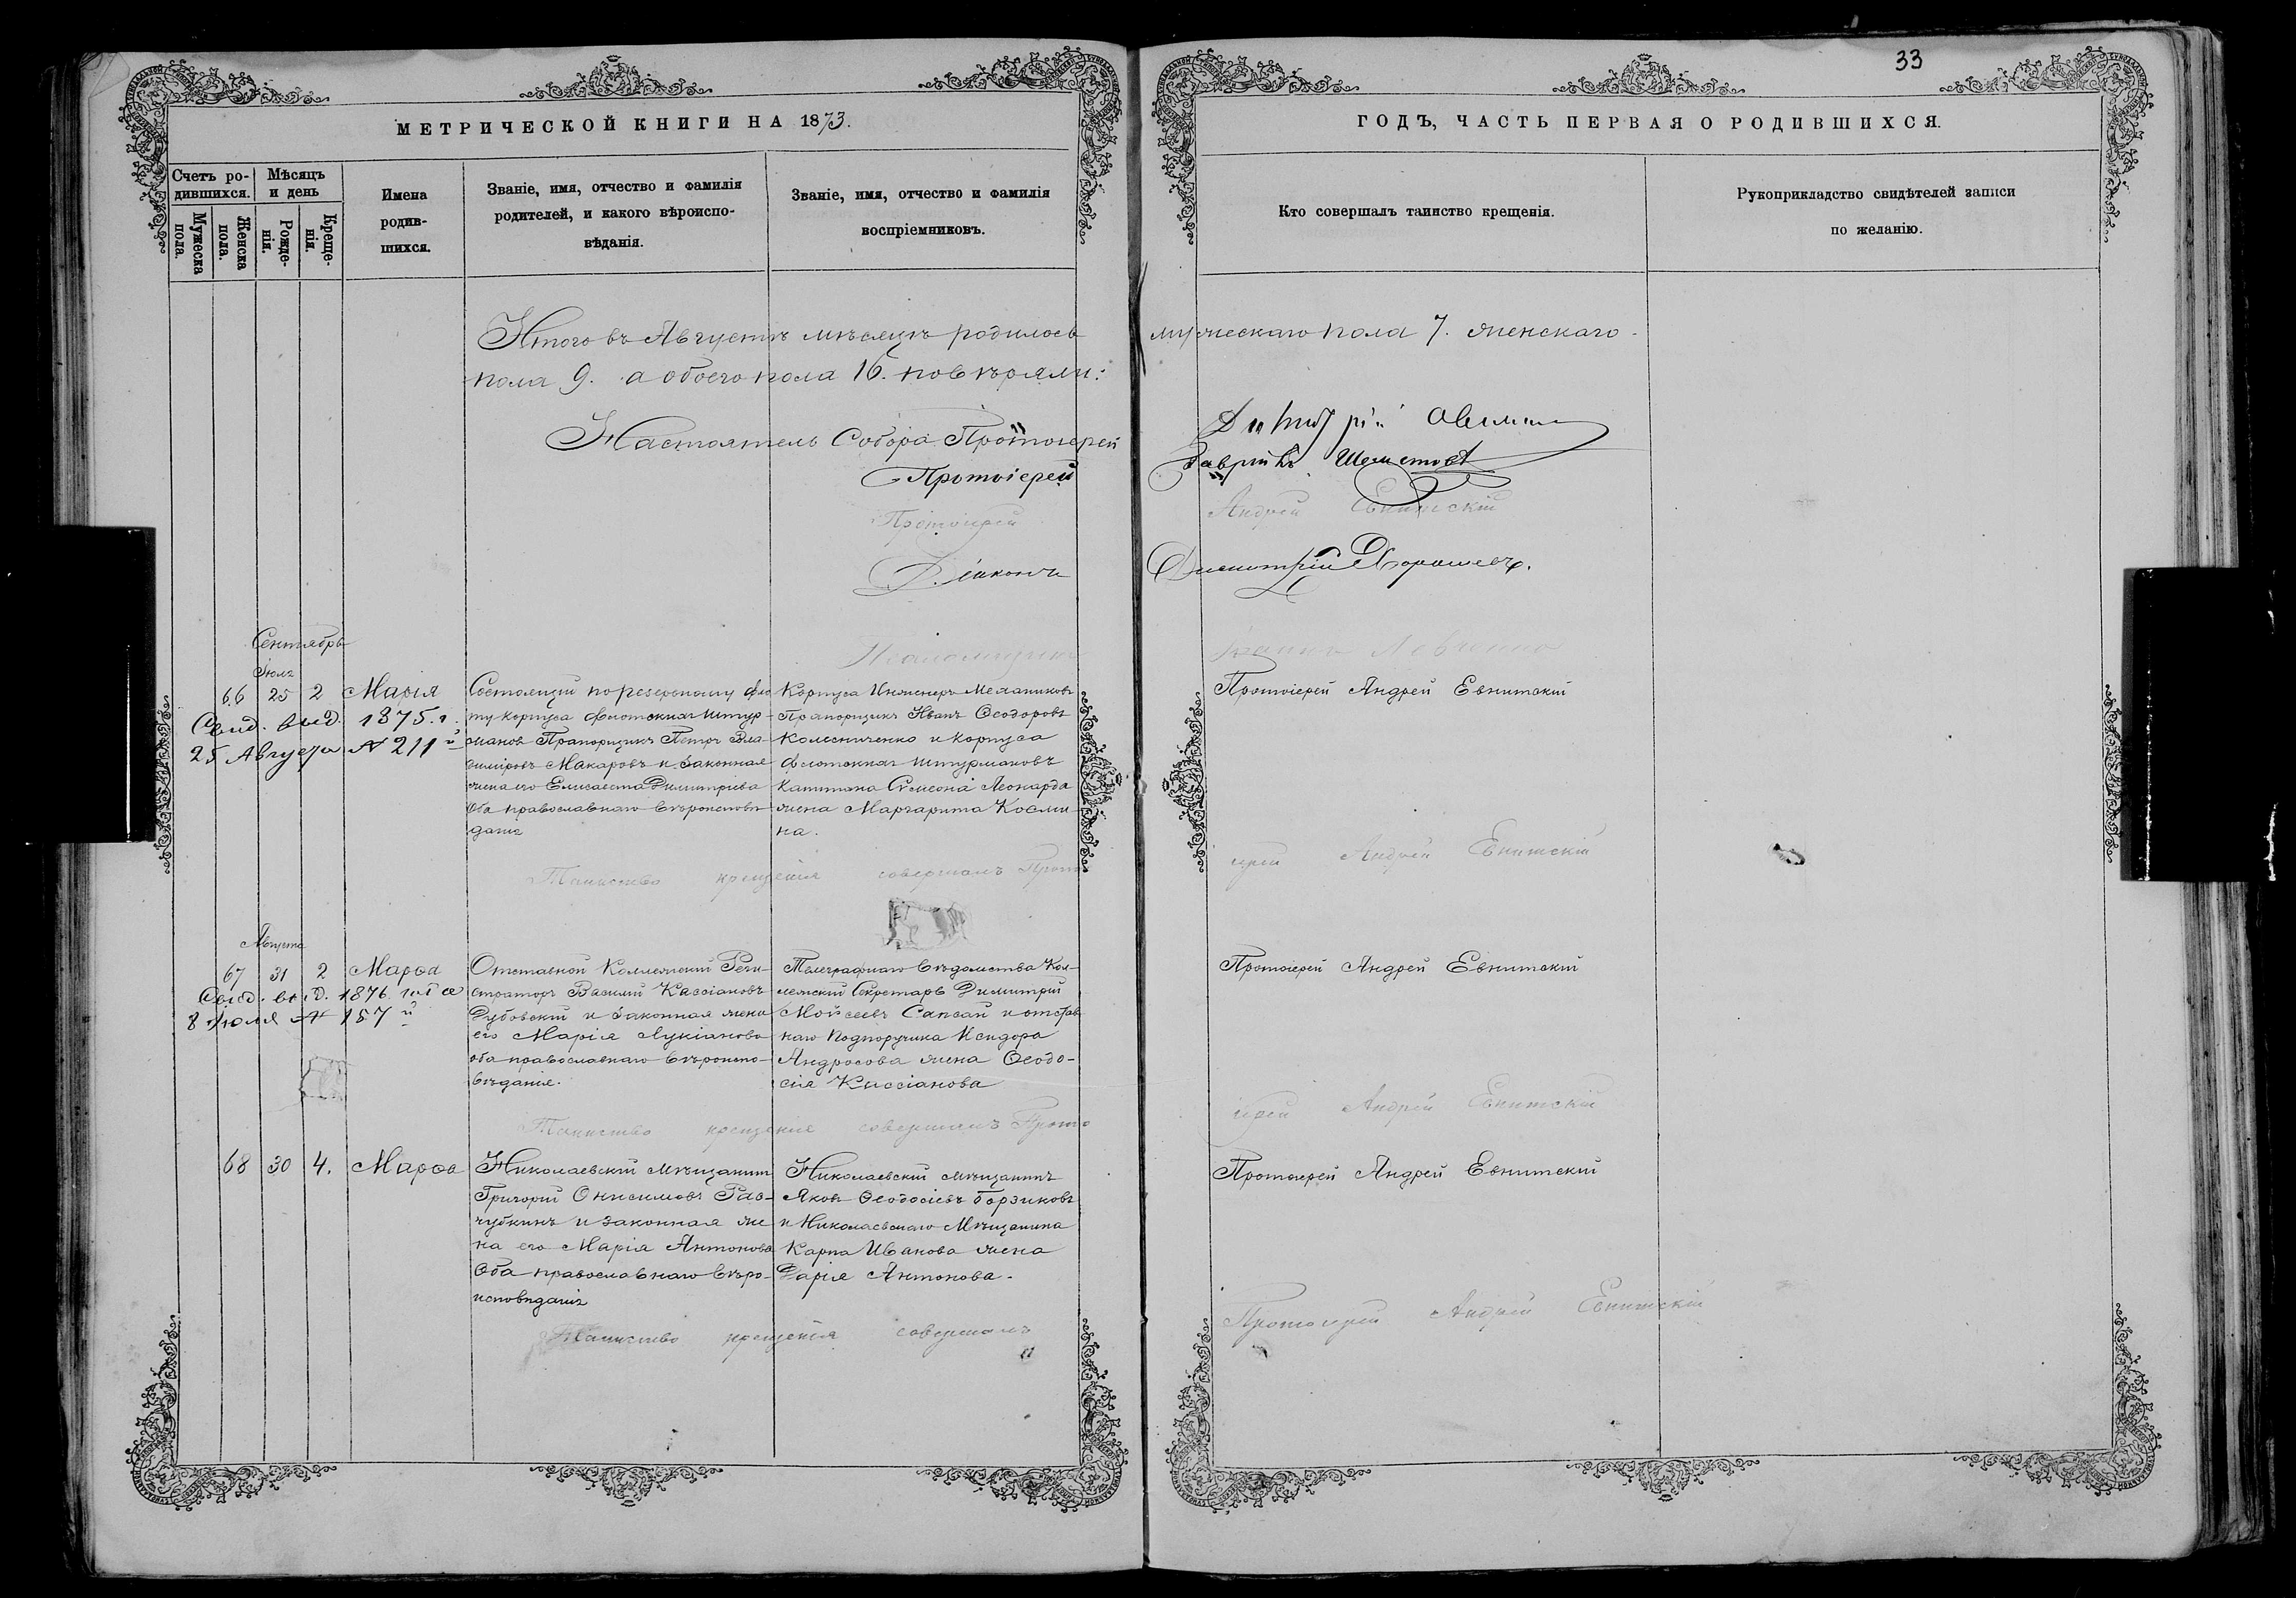 33
МЕТРИЧЕСКОЙ КНИГИ НА 1873.
ГОДЪ, ЧАСТЬ ПЕРВАЯ О РОДИВШИХСЯ.
Счетъ ро-
дившихся.
Мужеска
пола.
Женска
пола.
Мѣсяцъ
и день
Рожде-
нія.
Креще-
нія.
Имена
родив-
шихся.
Званіе, имя, отчество и фамилія
родителей, и какого вѣроиспо-
вѣданія.
Званіе, имя, отчество и фамилія
воспріемниковъ.
Кто совершалъ таинство крещенія.
Рукоприкладство свидѣтелей записи
по желанію.
Итого въ Августѣ мѣсяцѣ родилось мужескаго пола 7. женскаго
пола 9. а обоего пола 16. повѣряли:
Настоятель Собора Протоіерей
Протоіерей Гавріилъ
Протоіерей Андрей Евнитскій
Діаконъ Димитрій
Псаломщикъ
Сентябрь
Іюля
66 25 2 Марія
Свид. выд. 1875 г.
25 Августа № 211й
Состоящій по резервному фло
ту корпуса флотскихъ штур-
мановъ Прапорщикъ Петръ Вла-
диміровъ Макаровъ и законная
жена его Елисавета Димитріева
Оба православнаго вѣроисповѣ
данія
Корпуса Инженеръ Механиковъ
Прапорщикъ Иванъ Ѳеодоровъ
Колесниченко и корпуса
флотскихъ штурмановъ
Капитана Сѵмеона Леонарда
жена Маргарита Косми-
на.
Протоіерей Андрей Евнитскій
Таинство крещенія совершалъ Прото
іерей Андрей Евнитскій
Августа
67 31 2 Марѳа
Свид. выд. 1876 года
8 Іюля № 157й
Отставной Коллежскій Реги-
страторъ Василій Кассіановъ
Дубовскій и законная жена
его Марія Лукіанова
оба православнаго вѣроиспо-
вѣданія.
Телеграфнаго вѣдомства Кол-
лежскій Секретарь Димитрій
Мойсеевъ Сапсай и отстав
наго Подпоручика Исидора
Андросова жена Ѳеодо-
сія Кассіанова
Протоіерей Андрей Евнитскій
Таинство крещенія совершалъ Прото
іерей Андрей Евнитскій
68 30 4. Марѳа
Николаевскій мѣщанинъ
Григорій Онисимовъ
и законная же
на его Марія Антонова
Оба православнаго вѣро-
исповѣданія
Николаевскій мѣщанинъ
Яковъ Ѳеодосіевъ Борзиковъ
и Николаевскаго Мѣщанина
Карпа Иванова жена
Дарія Антонова.
Протоіерей Андрей Евнитскій
Таинство крещенія совершалъ
Протоіерей Андрей Евнитскій